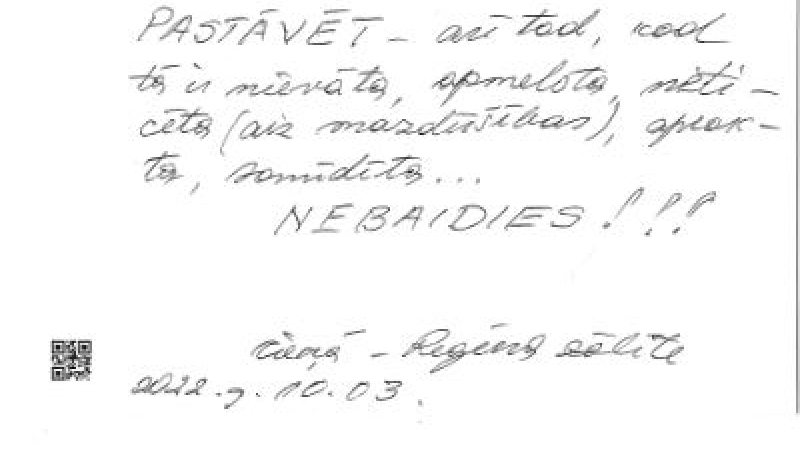 PASTĀVĒT – arī tad, kad
tā ir nievāta, apmelota, neti-
cēta (aiz mazdūšības), aprak-
ta, samīdīta...
NEBAIDIES !!!
cieņā – Regīna Sēlīte
2022.g. 10.03.